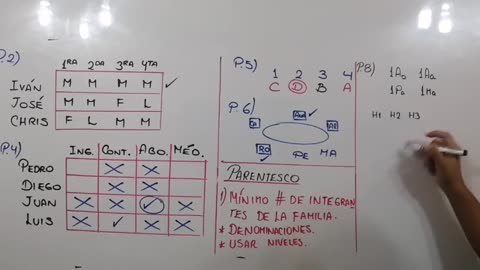 P.2)
1RA 2DA 3RA 4TA
IVÁN M M M M
JOSÉ M M F L
CHRIS F L M M
P.4)
ING. CONT. ABO. MÉD.
PEDRO X X
DIEGO X X
JUAN X X ✓ X
LUIS X ✓ X X
P.5)
1 2 3 4
C D B A
P.6)
RO PE MA
PARENTESCO
1) MÍNIMO # DE INTEGRAN
TES DE LA FAMILIA.
* DENOMINACIONES.
* USAR NIVELES.
P.8)
1Ao 1Aa
1Pa 1Ma
H1 H2 H3